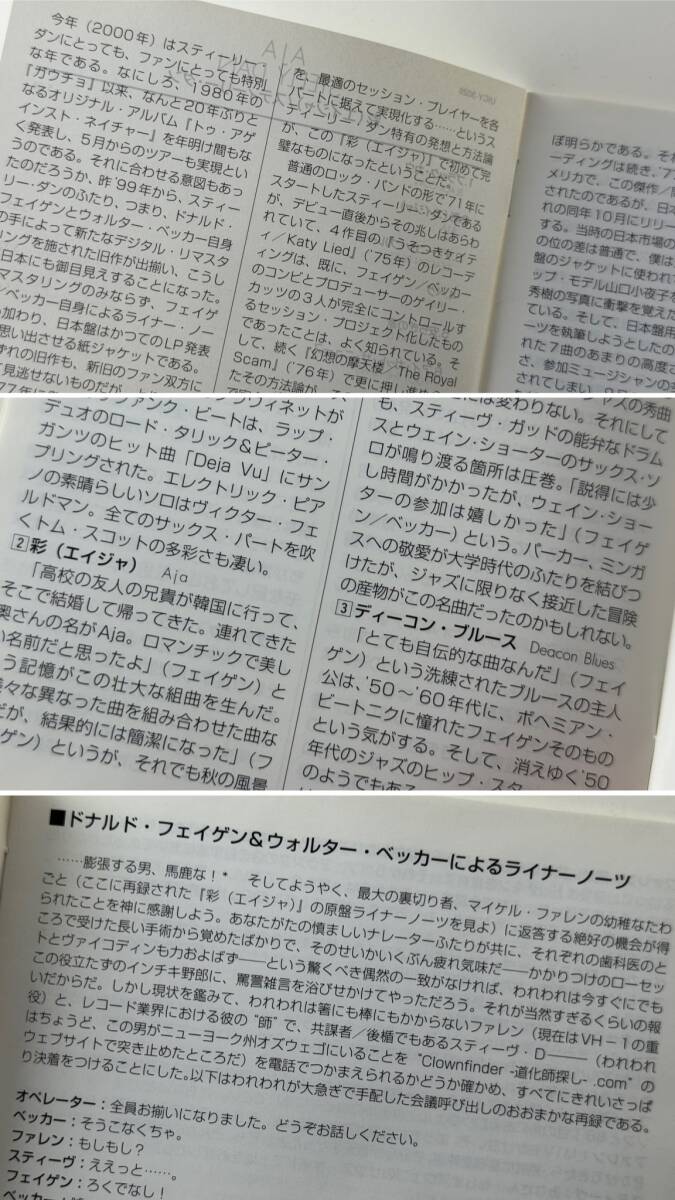 今年（2000年）はスティーリー・
ダンにとっても、ファンにとっても特別
な年である。なにしろ、1980年の
『ガウチョ』以来、なんと20年ぶりと
なるオリジナル・アルバム『トゥ・アゲ
インスト・ネイチャー』を年明け間もな
く発表し、5月からのツアーも実現とい
うのである。それに合わせる意図もあっ
たのだろうか、昨'99年から、スティー
リー・ダンのふたり、つまり、ドナルド・
フェイゲンとウォルター・ベッカー自身
の手によって新たなデジタル・リマスタ
リングを施された旧作が出揃い、こうし
日本にも御目見えすることになった。
マスタリングのみならず、フェイゲン
／ベッカー自身によるライナー・ノー
加わり、日本盤はかつてのLP発表
思い出させる紙ジャケットである。
ずれの旧作も、新旧のファン双方に
見逃せないものだが、
を、最適のセッション・プレイヤーを各
パートに据えて実現化する……というス
ティーリー・ダン特有の発想と方法論
が、この『彩（エイジャ）』で初めて完
璧なものになったということだ。
普通のロック・バンドの形で'71年に
スタートしたスティーリー・ダンである
が、デビュー直後からその兆しはあらわ
れていて、4作目の『うそつきケイテ
ィ／Katy Lied』（'75年）のレコーデ
ィングは、既に、フェイゲン／ベッカー
のコンビとプロデューサーのゲイリー・
カッツの3人が完全にコントロールす
るセッション・プロジェクト化したもの
であったことは、よく知られている。そ
して、続く『幻想の摩天楼／The Royal
Scam』（'76年）で更に押し進め
たその方法論が、
UICY-3020
ぼ明らかである。それ
ーディングは続き、'77
メリカで、この傑作／
されたのであるが、日本
れの同年10月にリリー
する。当時の日本市場の
の位の差は普通で、僕は
盤のジャケットに使われて
ップ・モデル山口小夜子を
秀樹の写真に衝撃を覚えた
ている。そして、日本盤用
ーツを執筆しようとしたの
れた7曲のあまりの高度さ
さ、参加ミュージシャンの
されてしまい
ヴィネットが
ファンク・ビートは、ラップ・
デュオのロード・タリック＆ピーター・
ガンツのヒット曲「Deja Vu」にサン
プリングされた。エレクトリック・ピア
ノの素晴らしいソロはヴィクター・フェ
ルドマン。全てのサックス・パートを吹
くトム・スコットの多彩さも凄い。
2 彩（エイジャ） Aja
「高校の友人の兄貴が韓国に行って、
そこで結婚して帰ってきた。連れてきた
奥さんの名がAja。ロマンチックで美し
い名前だと思ったよ」（フェイゲン）と
う記憶がこの壮大な組曲を生んだ。
々な異なった曲を組み合わせた曲な
だが、結果的には簡潔になった」（フ
ゲン）というが、それでも秋の風景
ジャズの秀曲
には変わりない。それにして
も、スティーヴ・ガッドの能弁なドラム
スとウェイン・ショーターのサックス・ソ
ロが鳴り渡る箇所は圧巻。「説得には少
し時間がかかったが、ウェイン・ショー
ターの参加は嬉しかった」（フェイゲ
ン／ベッカー）という。パーカー、ミンガ
スへの敬愛が大学時代のふたりを結びつ
けたが、ジャズに限りなく接近した冒険
の産物がこの名曲だったのかもしれない。
3 ディーコン・ブルース Deacon Blues
「とても自伝的な曲なんだ」（フェイ
ゲン）という洗練されたブルースの主人
公は、'50～'60年代に、ボヘミアン・
ビートニクに憧れたフェイゲンそのもの
という気がする。そして、消えゆく'50
年代のジャズのヒップ・スタ
のようでもある
■ドナルド・フェイゲン＆ウォルター・ベッカーによるライナーノーツ
……膨張する男、馬鹿な！* そしてようやく、最大の裏切り者、マイケル・ファレンの幼稚なたわ
ごと（ここに再録された『彩（エイジャ）』の原盤ライナーノーツを見よ）に返答する絶好の機会が得
られたことを神に感謝しよう。あなたがたの慎ましいナレーターふたりが共に、それぞれの歯科医のと
ころで受けた長い手術から覚めたばかりで、そのせいかいくぶん疲れ気味だ――かかりつけのローセッ
トとヴァイコディンも力およばず――という驚くべき偶然の一致がなければ、われわれは今すぐにでも
この役立たずのインチキ野郎に、罵詈雑言を浴びせかけてやっただろう。それが当然すぎるくらいの報
いだからだ。しかし現状を鑑みて、われわれは箸にも棒にもかからないファレン（現在はVH－1の重
役）と、レコード業界における彼の“師”で、共謀者／後楯でもあるスティーヴ・D――（われわれ
はちょうど、この男がニューヨーク州オズウェゴにいることを“Clownfinder -道化師探し- .com”の
ウェブサイトで突き止めたところだ）を電話でつかまえられるかどうか確かめ、すべてにきれいさっぱ
り決着をつけることにした。以下はわれわれが大急ぎで手配した会議呼び出しのおおまかな再録である。
オペレーター：全員お揃いになりました。どうぞお話しください。
ベッカー：そうこなくちゃ。
ファレン：もしもし？
スティーヴ：ええっと……。
フェイゲン：ろくでなし！
ベッカー：